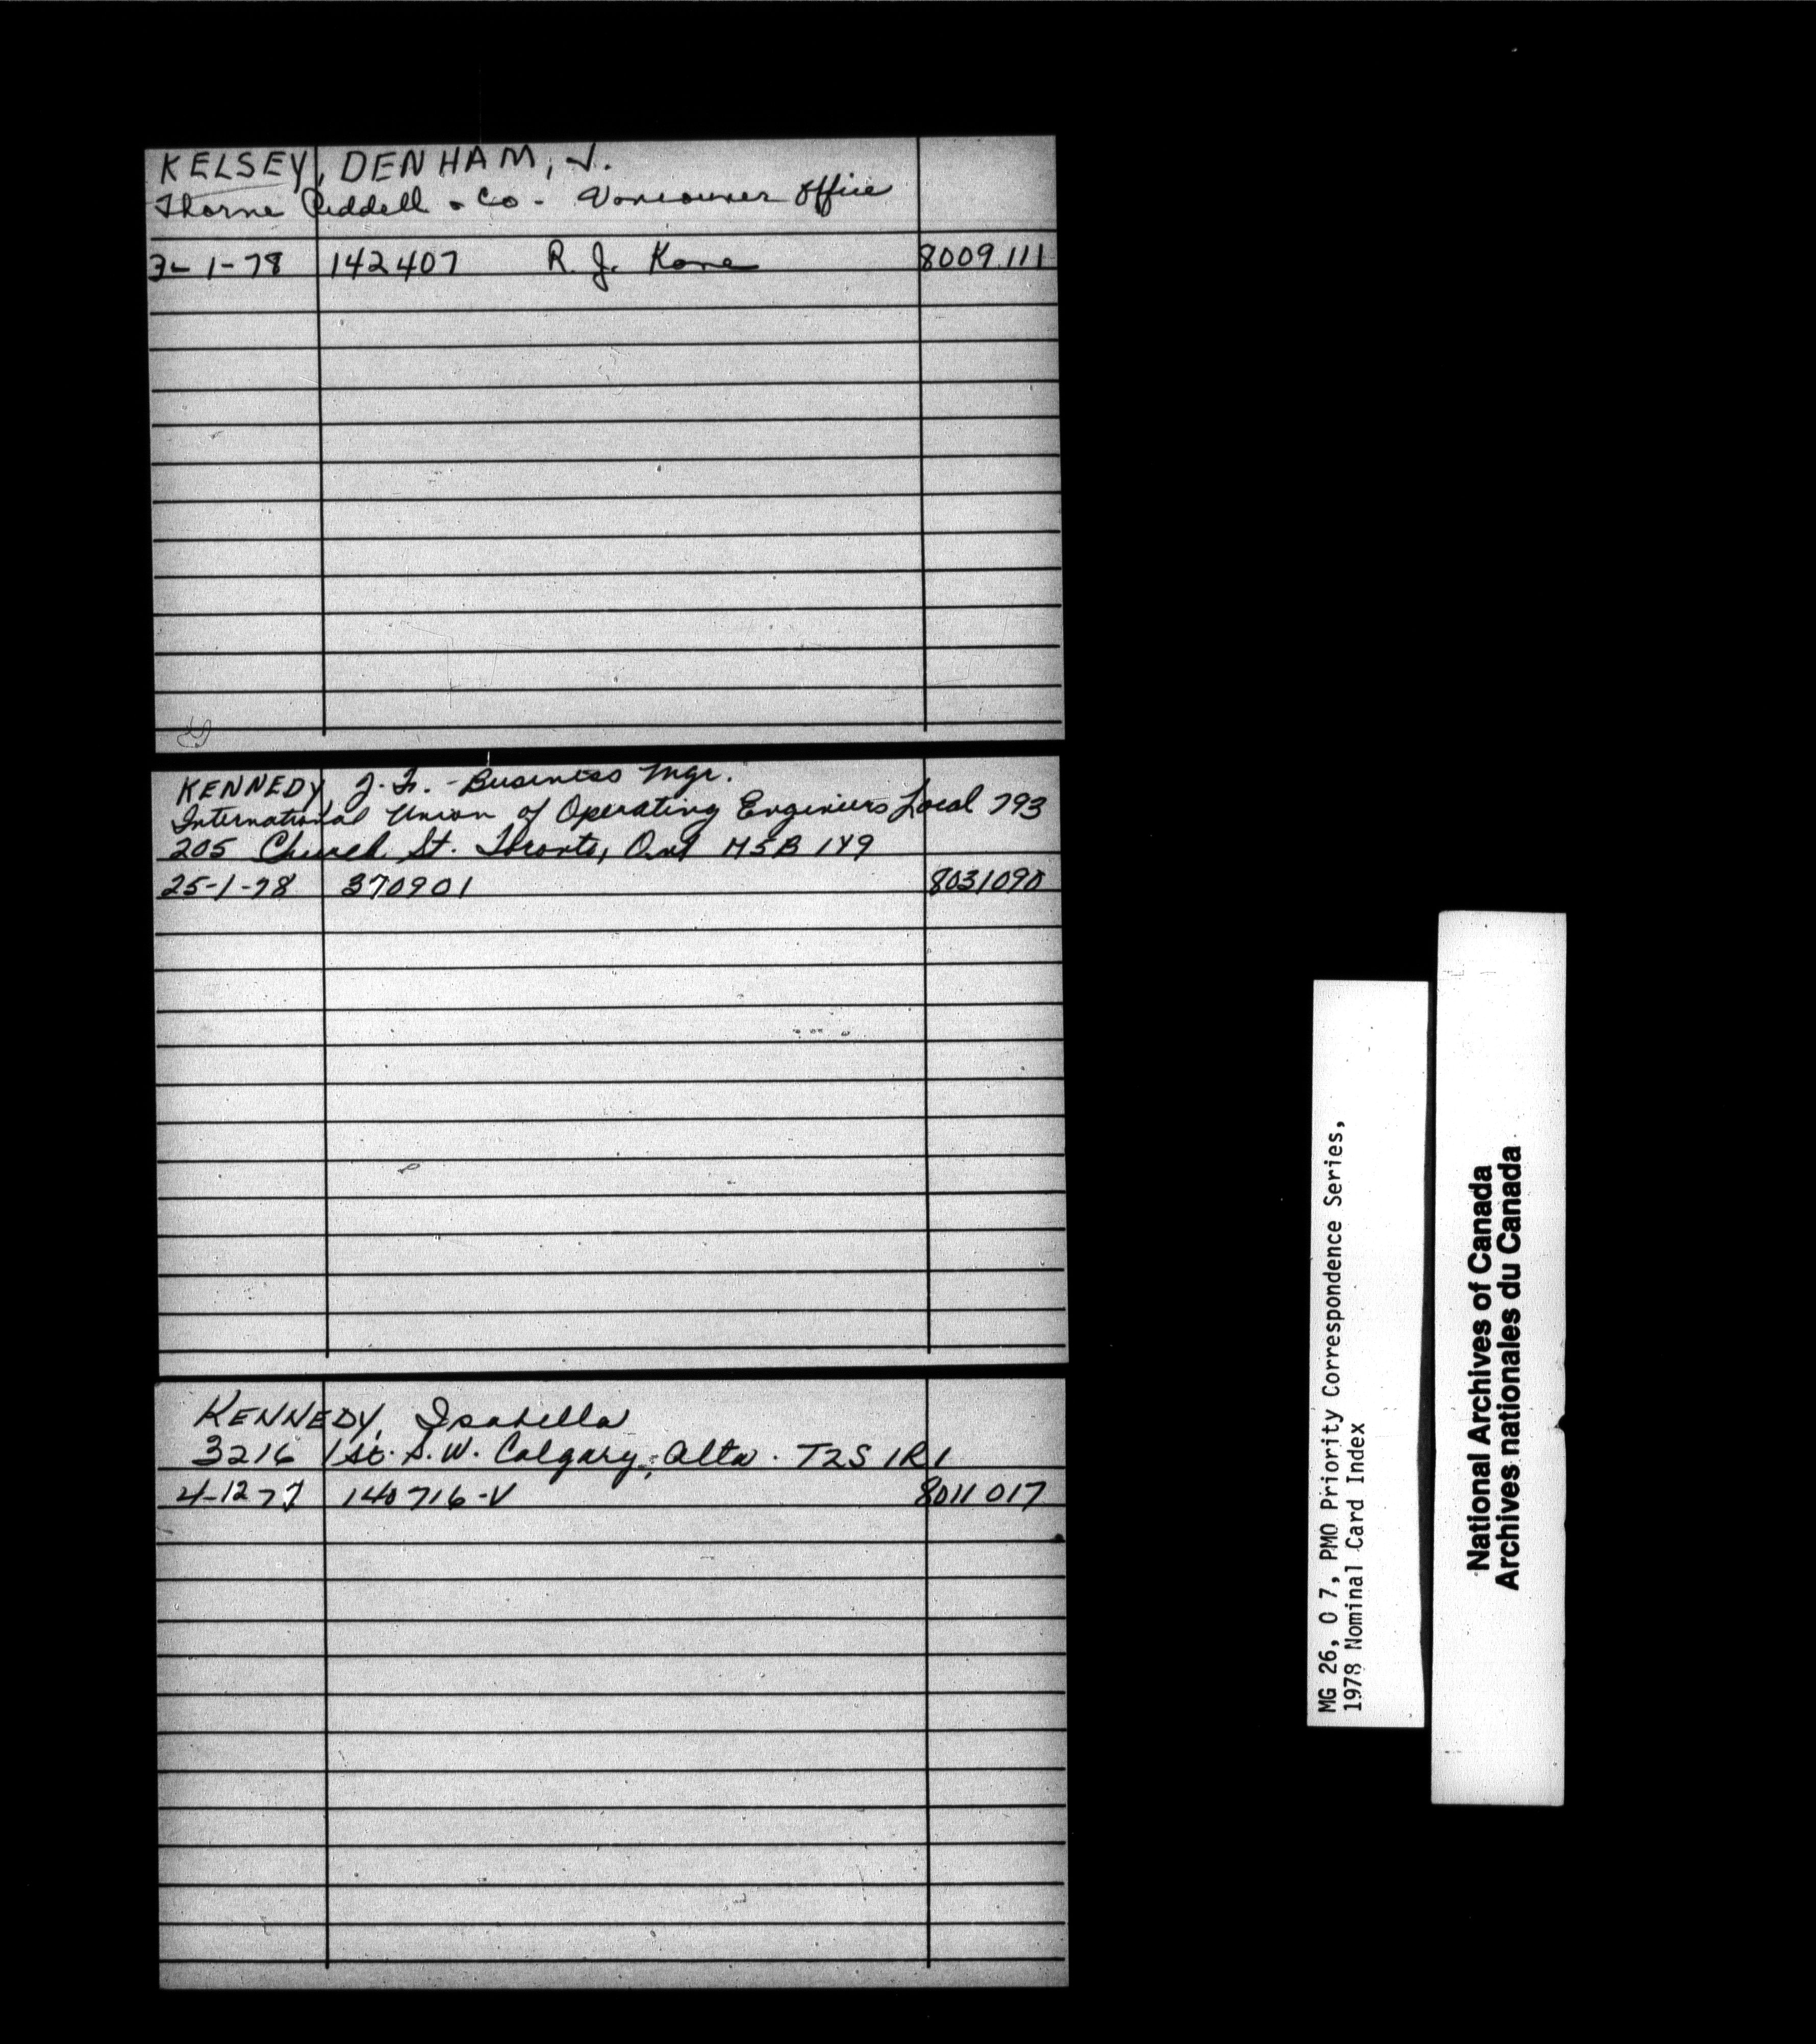 KELSEY, DENHAM, J.
Thorne Riddell & Co - Vancouver Office
3-1-78 142407 R. J. Kane 8009111
KENNEDY J. F. - Business Mgr.
International Union of Operating Engineers Local 793
205 Church St. Toronto, Ont M5B 1Y9
25-1-78 370901 8031090
KENNEDY, Isabella
3216 1 St. S.W. Calgary, Alta. T2S 1R1
4-12 77 140716-V 8011017
MG 26, O 7, PMO Priority Correspondence Series,
1978 Nominal Card Index
National Archives of Canada
Archives nationales du Canada